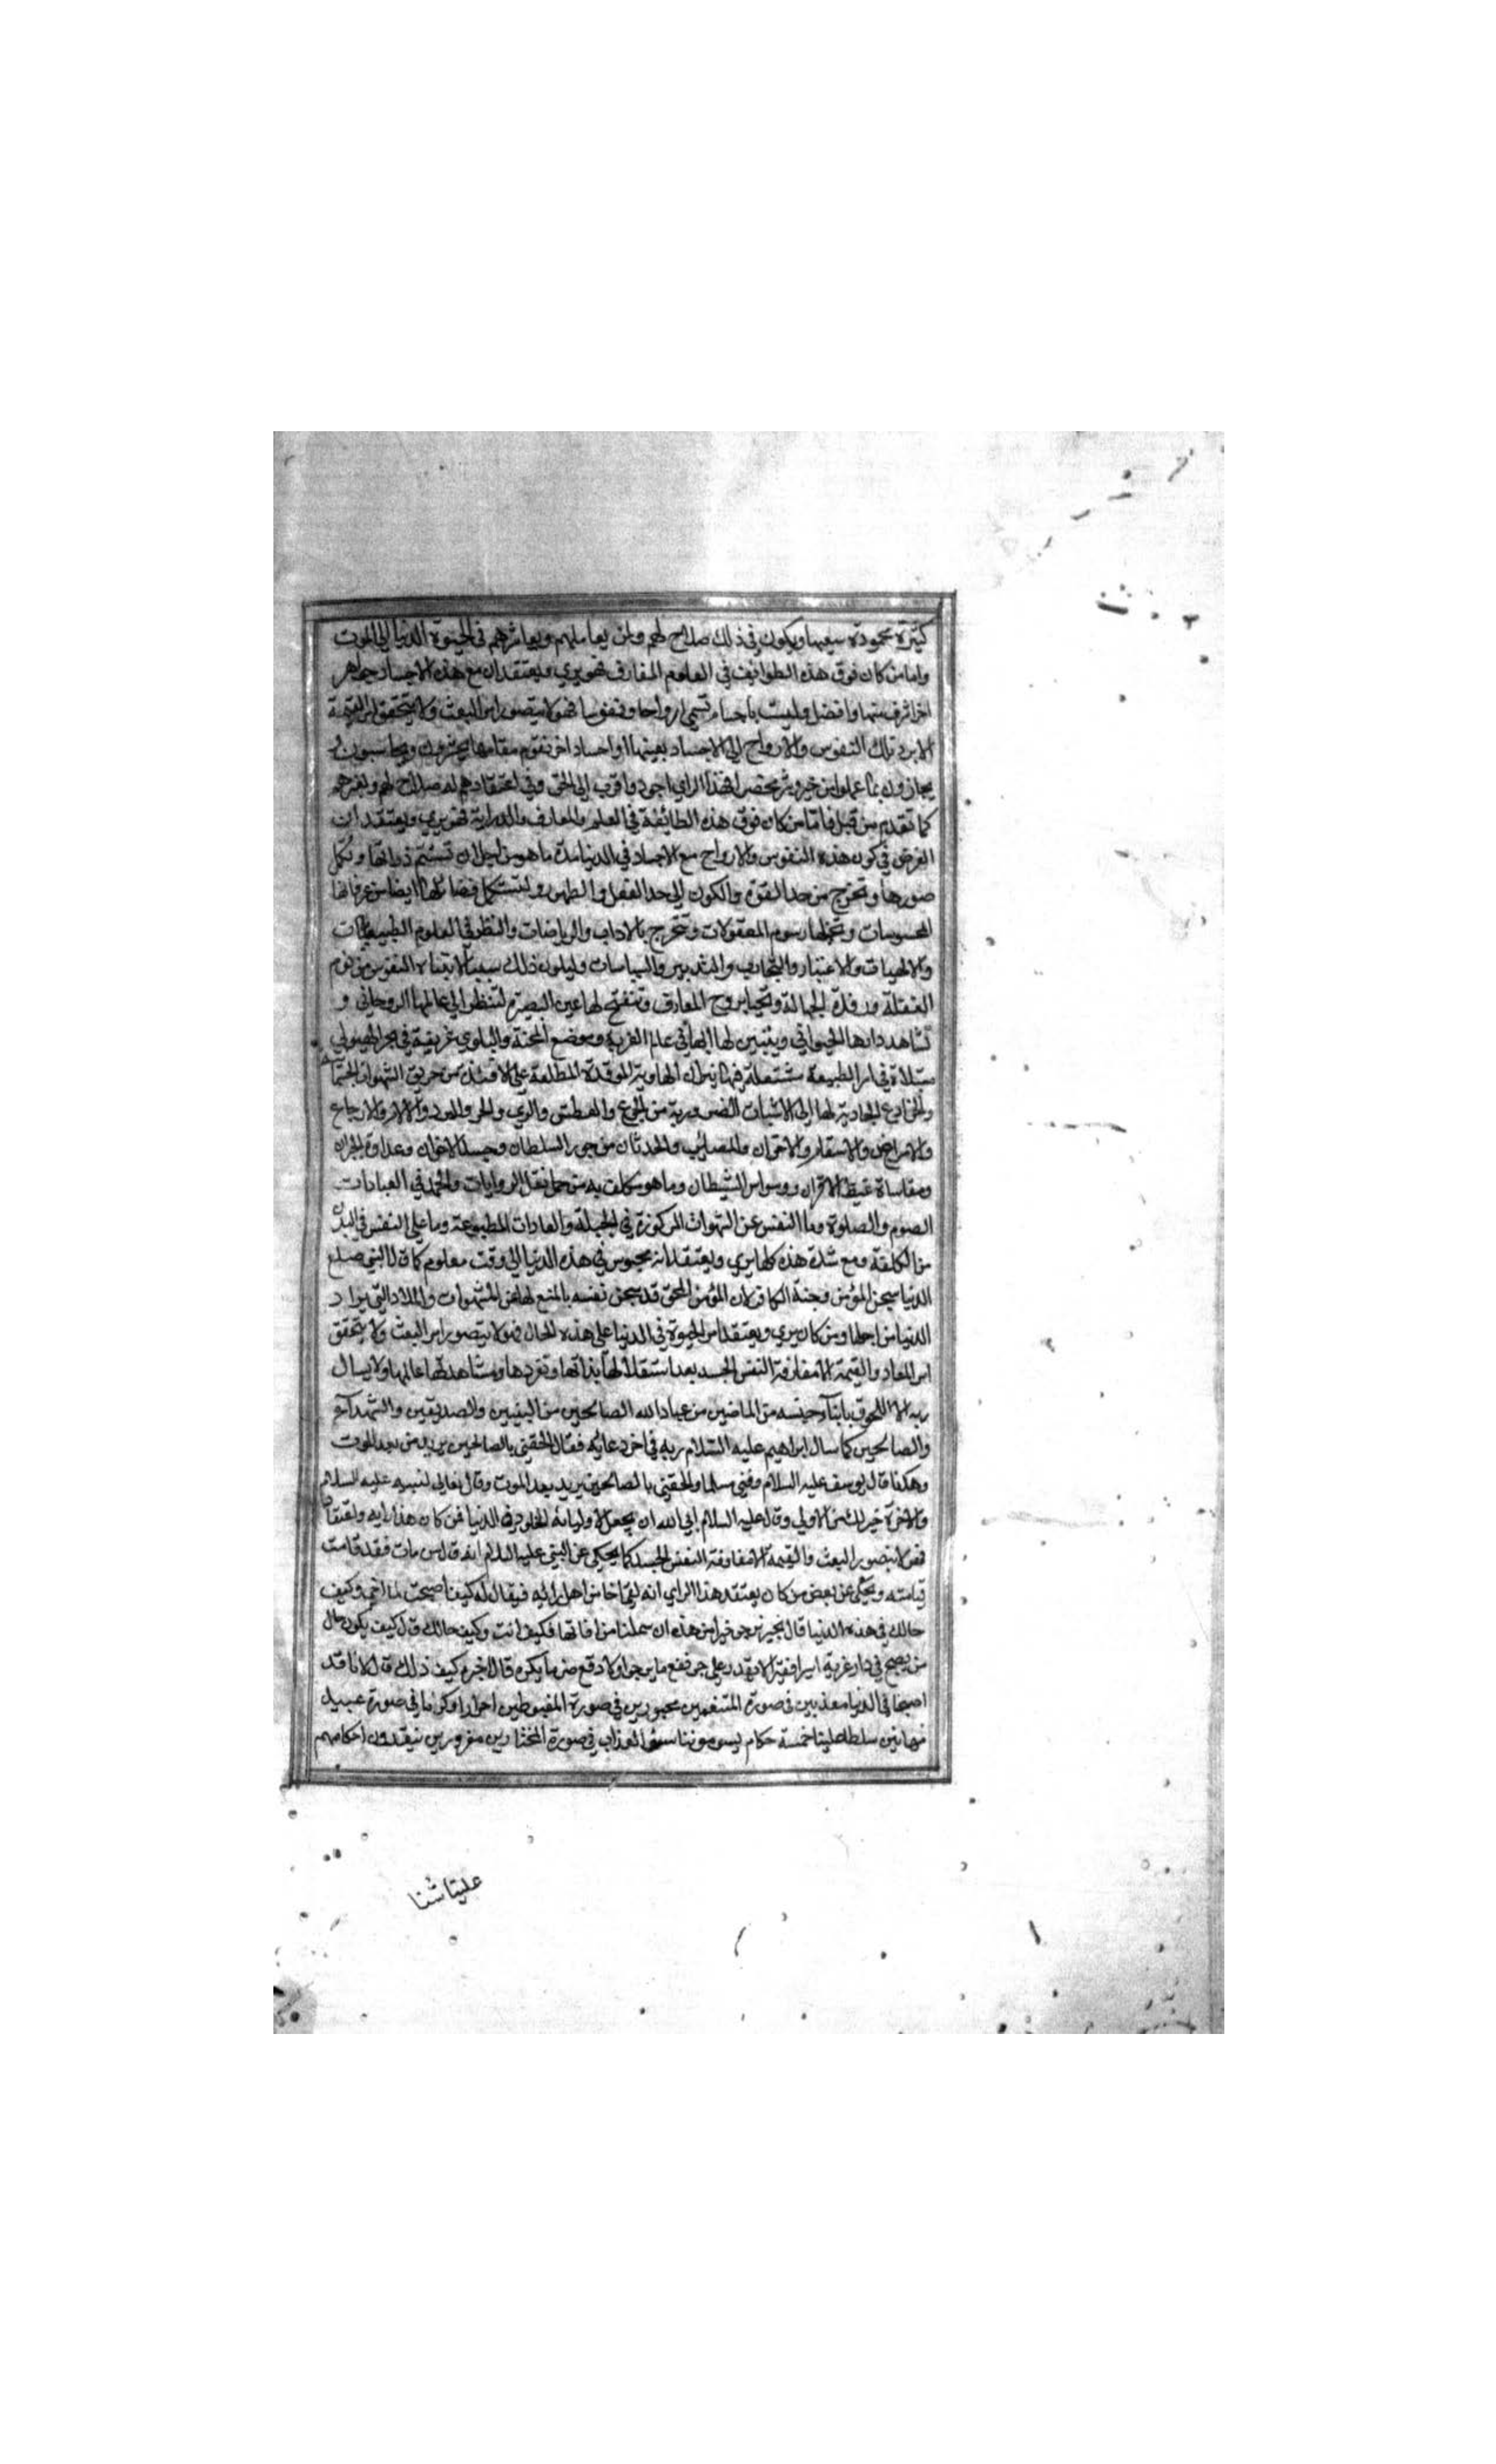 كثيرة محمودة سعيها ويكون في ذلك صلاح لهم ولمن يعاملهم ويعاشرهم في الحيوة الدنيا الى الموت
واما من كان فوق هذه الطوائف في العلوم المعارف فهو يري ويعتقد ان مع هذه الاجساد جواهر
اخر اشرف منها وافضل وليست باجسام تسمي ارواحا ونفوسا فهو لا يتصور امر البعث ولا يتحقق امر القيمة
الا برد تلك النفوس والارواح الي الاجساد بعينها او اجساد اخر تقوم مقامها يحشرون ويحاسبون و
يجازون بما عملوا من خير وشر محضرا فهذا الراي اجود واقرب الى الحق وفي اعتقادهم له صلاح لهم ولغيرهم
كما تقدم من قبل فاما من كان فوق هذه الطائفة في العلم والمعارف والدراية فهو يري ويعتقد ان
الغرض في كون هذه النفوس والارواح مع الاجساد في الدنيا مدة ما هو من اجل ان تستتم ذماتها وتكمل
صورها وتخرج من حد القوة والكون الى حد الفعل والظهور ولتستكمل فضائلها ايضا من عرفانها
المحسوسات وتخيلها رسوم المعقولات وتتخرج بالاداب والرياضات والنظر في العلوم الطبيعيات
والالهيات والاعتبار والتجارب والتدبير والسياسات وليكون ذلك سببا لانتباه النفوس من نوم
الغفلة ورقدة الجهالة وتحيا بروح المعارف وتنفتح لها عين البصيرة لتنظر الى عالمها الروحاني و
تشاهد دارها الحيواني ويتبين لها انها في عالم الغربة وموضع المحنة والبلوي غريقة في بحر الهيولي
مبتلاة في اسر الطبيعة مشتعلة فيها نيران الهاوية الموقدة المطلعة علي الافئدة من حريق الشهوات الجسمانية
والخنادع الجاذبة لها الى الاشيات الضرورية من الجوع والعطش والري والحر والبرد والالام والاوجاع
والامراض والاسقام والاحزان والمصائب والحدثان من جور السلطان وحسد الاخوان وعداوة الجيران
ومقاساة غيظ الاقران ووسواس الشيطان وما هو مكلف به من حمل ثقل الروايات والجهد في العبادات
الصوم والصلوة ومنا النفس عن الشهوات المركوزة في الجبلة والعادات المطبوعة وما علي النفس في البدن
من الكلفة ومع شدة هذه كلها يري ويعتقد انه محبوس في هذه الدنيا الى وقت معلوم كما قال النبي صلع
الدنيا سجن المؤمن وجنة الكافر لان المؤمن المحق قد سجن نفسه بالمنع لها عن الشهوات والملاذ التي يراد
الدنيا من اجلها ومن كان يري ويعتقد امر الحيوة في الدنيا علي هذه الحال فهو لا يتصور امر البعث ولا يتحقق
امر المعاد والقيمة الا مفارقة النفس الجسد بعد استقلالها بذاتها وتفردها ومشاهدتها عالمها ولا يسال
ربه الا اللحوق بابناء جنسه من الماضين من عباد الله الصالحين من النبيين والصديقين والشهداء
والصالحين كما سال ابراهيم عليه السلام ربه في اخر دعائه فقال الحقني بالصالحين يريد من بعد الموت
وهكذا قال يوسف عليه السلام وفني مسلما والحقني بالصالحين يريد بعد الموت وقال تعالي لنبيه عليه السلام
والاخرة خير لك من الاولي وقال عليه السلام ابي الله ان يجعل لاوليائه الخلود في الدنيا فمن كان هذا رايه واعتقاده
فهو لا يتصور البعث والقيمة الا مفارقة النفس الجسد كما يحكي عن النبي عليه السلام انه قال من مات فقد قامت
قيامته ويحكي عن بعض من كان يعتقد هذا الراي انه لقي اخا من اهل رايه فيقال له كيف اصبحت يا اخي وكيف
حالك في هذه الدنيا قال بخير نرجو خيرا من هذه ان سلمنا من افاتها فكيف انت وكيف حالك قال كيف يكون حال
من يصبح في دار غربة اسيرا فقيرا لا يقدر علي جر نفع ما يرجو او لا دفع ضر ما يكره قال اخبره كيف ذلك قال لانا قد
اصبحنا في الدنيا معذبين في صورة المتنعمين مجبورين في صورة المغبوطين احرارا وكراما في صورة عبيد
مهانين سلط علينا خمسة حكام يسوموننا سوء العذاب في صورة المختارين مغرورين ينفذون احكامهم
علينا شئنا